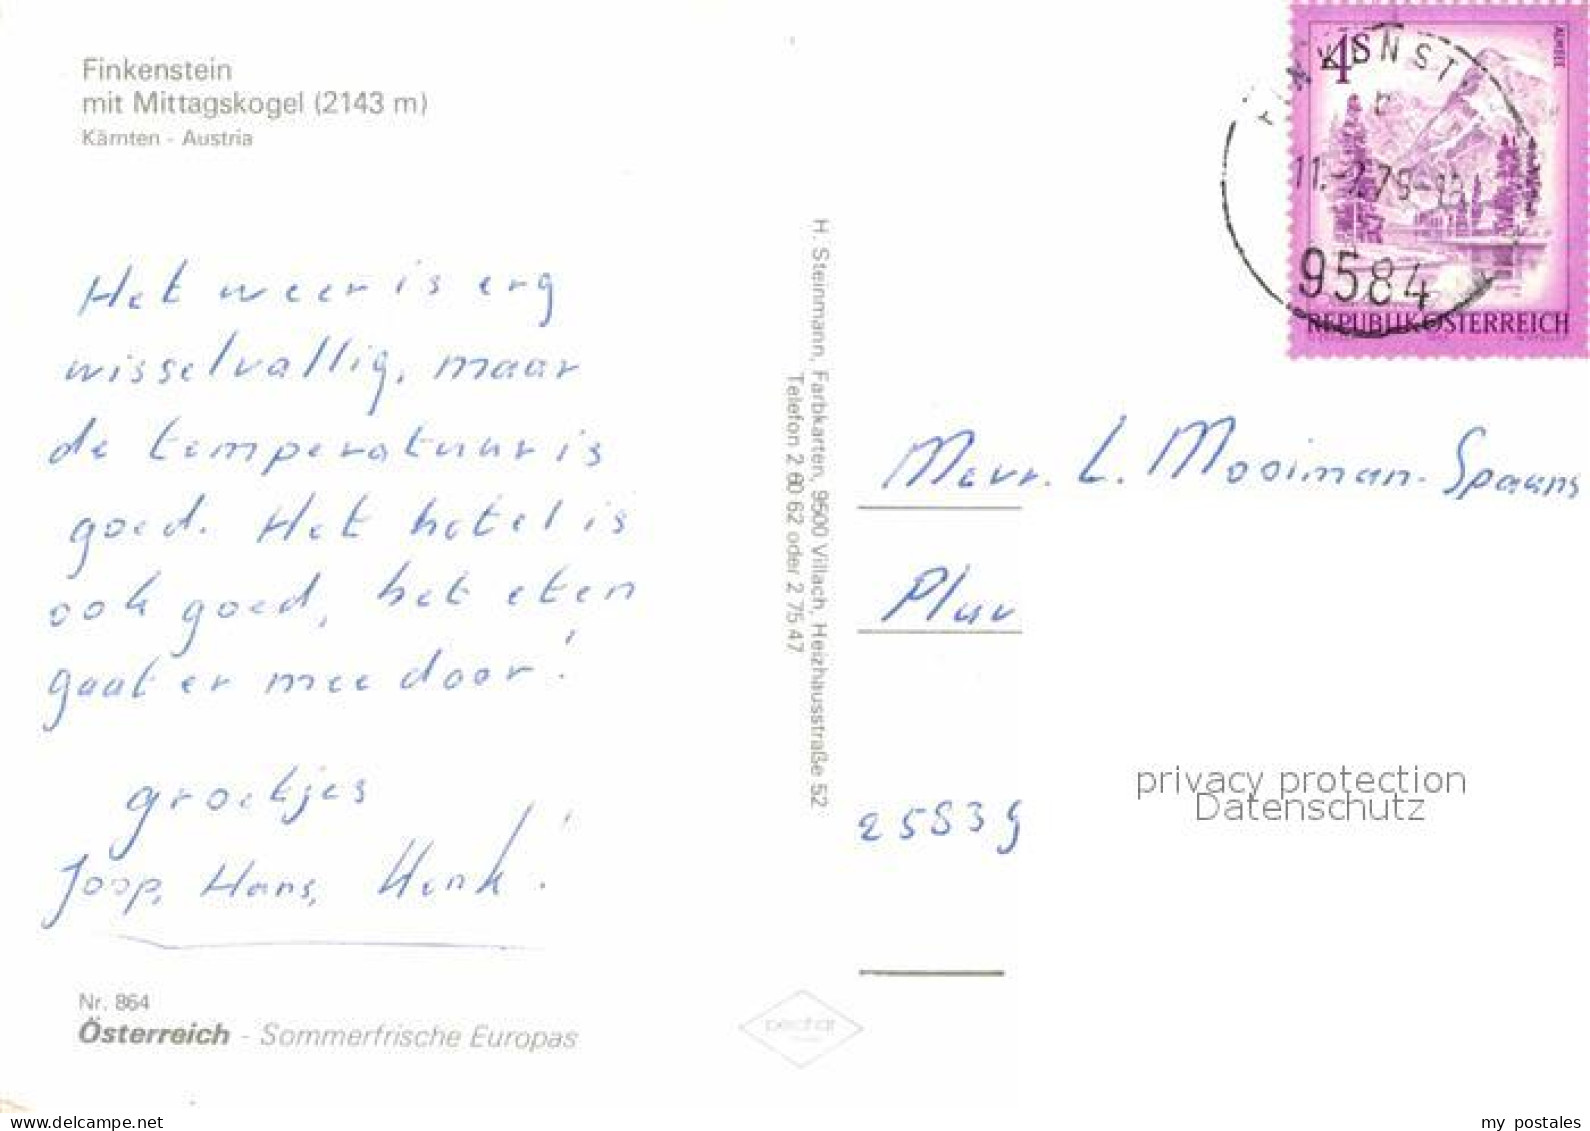 Finkenstein
mit Mittagskogel (2143 m)
Kärnten - Austria
Het weer is erg
wisselvallig, maar
de temperatuur is
goed. Het hotel is
ook goed, het eten
gaat er mee door!
groetjes
Joop, Hans, Henk!
Nr. 864
Österreich - Sommerfrische Europas
H. Steinmann, Farbkarten, 9500 Villach, Heizhausstraße 52
Telefon 2 60 62 oder 2 75 47
pechar
4S
ALMSEE
REPUBLIK ÖSTERREICH
9584
Mevr. L. Mooiman-Spaans
privacy protection
Datenschutz
my postales
www.delcampe.net